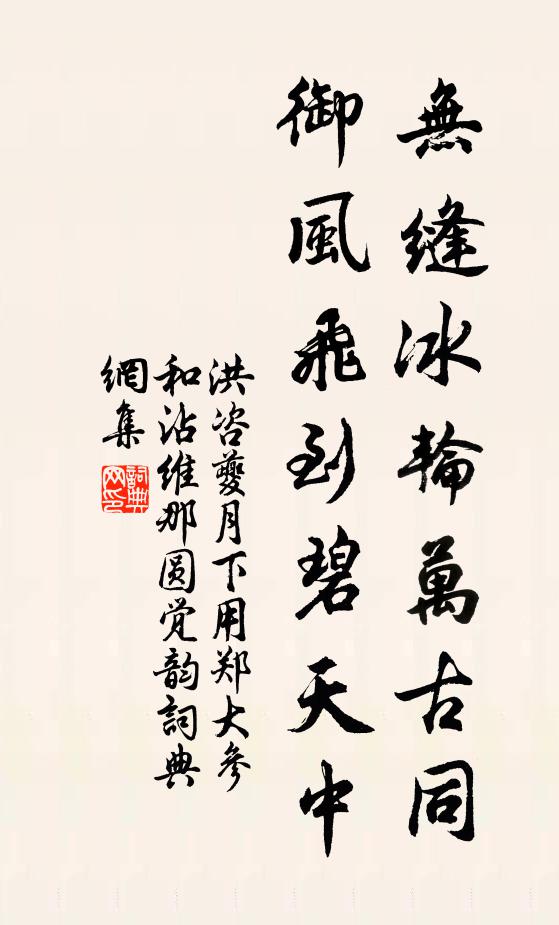 無縫冰輪萬古同
御風飛到碧天中
洪咨夔月下用郑大參
和沾維那圆觉韵詞典
網集
詞典网印